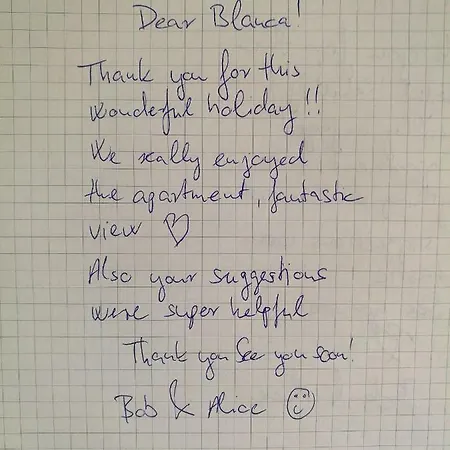 Dear Blanca!
Thank you for this
wonderful holiday!!
We really enjoyed
the apartment, fantastic
view ♡
Also your suggestions
were super helpful
Thank you See you soon!
Bob & Alice ☺